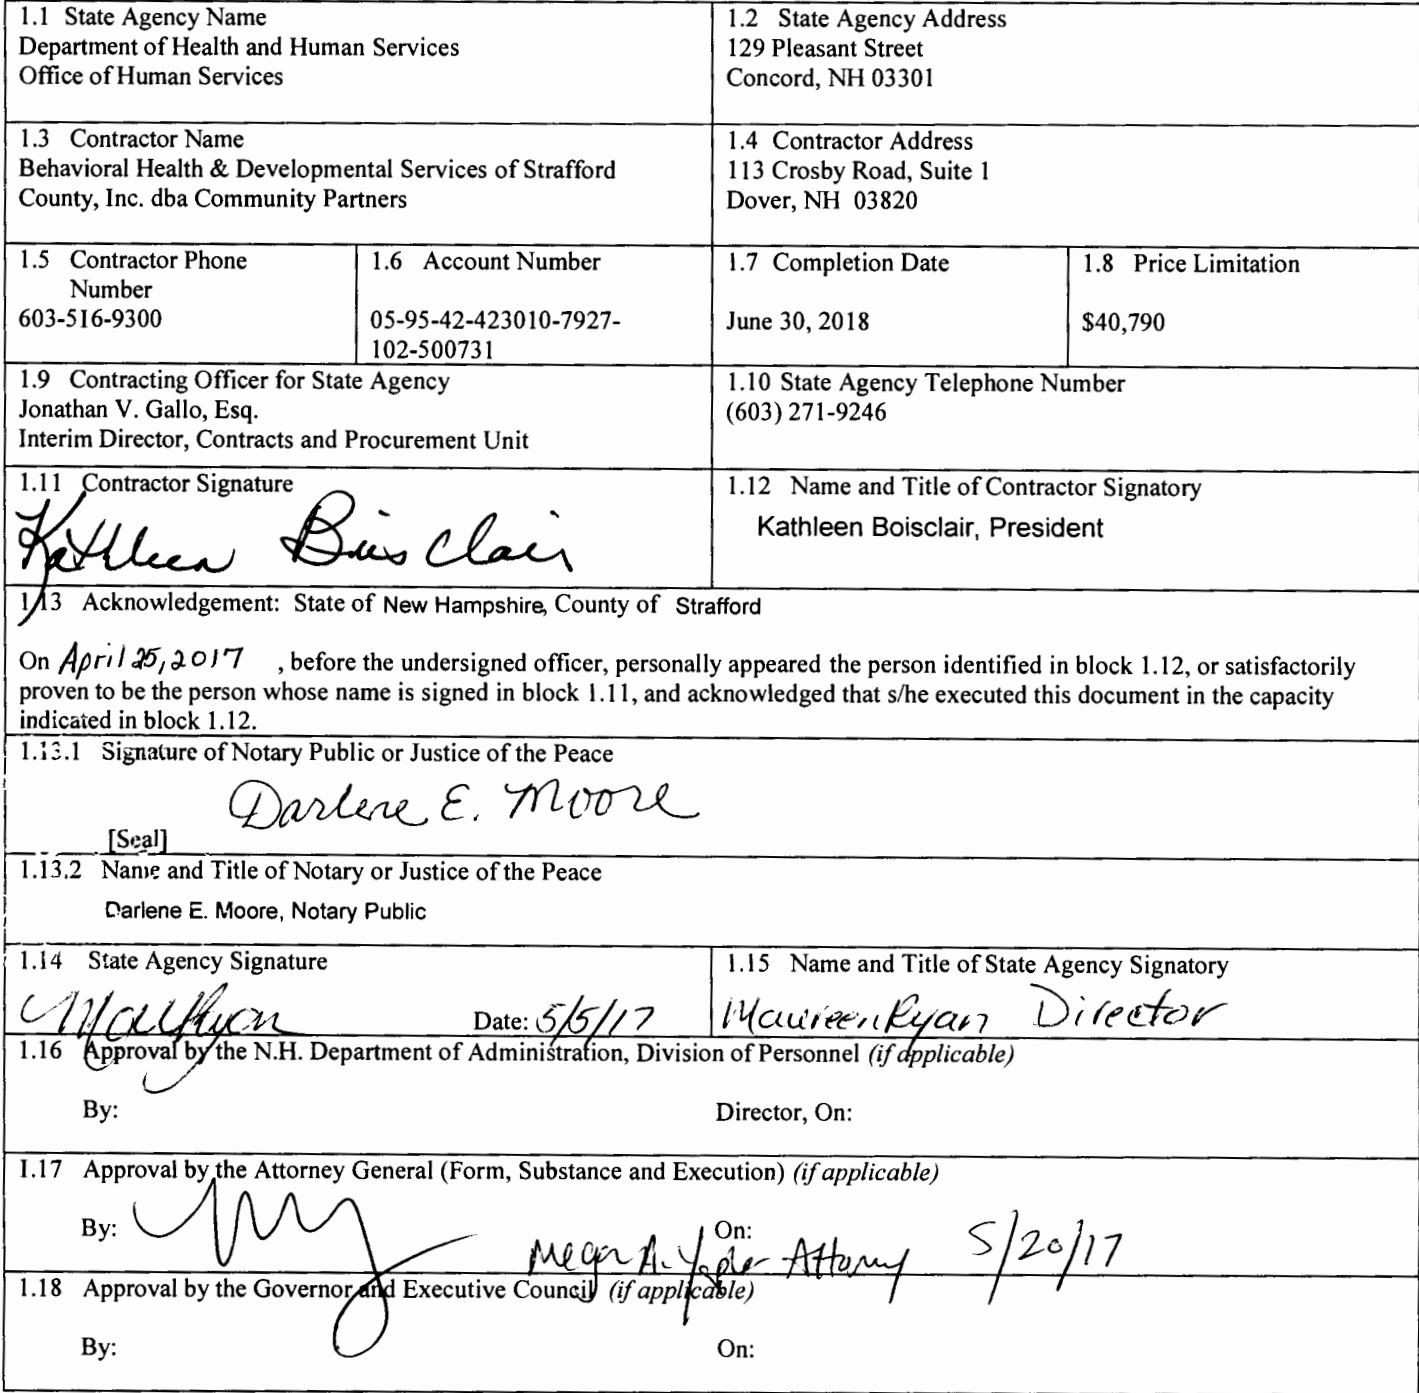 1.1 State Agency Name
Department of Health and Human Services
Office of Human Services
1.2 State Agency Address
129 Pleasant Street
Concord, NH 03301
1.3 Contractor Name
Behavioral Health & Developmental Services of Strafford
County, Inc. dba Community Partners
1.4 Contractor Address
113 Crosby Road, Suite 1
Dover, NH 03820
1.5 Contractor Phone
Number
603-516-9300
1.6 Account Number
05-95-42-423010-7927-
102-500731
1.7 Completion Date
June 30, 2018
1.8 Price Limitation
$40,790
1.9 Contracting Officer for State Agency
Jonathan V. Gallo, Esq.
Interim Director, Contracts and Procurement Unit
1.10 State Agency Telephone Number
(603) 271-9246
1.11 Contractor Signature
Kathleen Boisclair
1.12 Name and Title of Contractor Signatory
Kathleen Boisclair, President
1.13 Acknowledgement: State of New Hampshire, County of Strafford
On April 25, 2017 , before the undersigned officer, personally appeared the person identified in block 1.12, or satisfactorily
proven to be the person whose name is signed in block 1.11, and acknowledged that s/he executed this document in the capacity
indicated in block 1.12.
1.13.1 Signature of Notary Public or Justice of the Peace
Darlene E. Moore
[Seal]
1.13.2 Name and Title of Notary or Justice of the Peace
Darlene E. Moore, Notary Public
1.14 State Agency Signature
Date: 5/5/17
1.15 Name and Title of State Agency Signatory
Maureen Ryan Director
1.16 Approval by the N.H. Department of Administration, Division of Personnel (if applicable)
By:
Director, On:
1.17 Approval by the Attorney General (Form, Substance and Execution) (if applicable)
By:
On:
Megan A. Attorney 5/20/17
1.18 Approval by the Governor and Executive Council (if applicable)
By:
On: